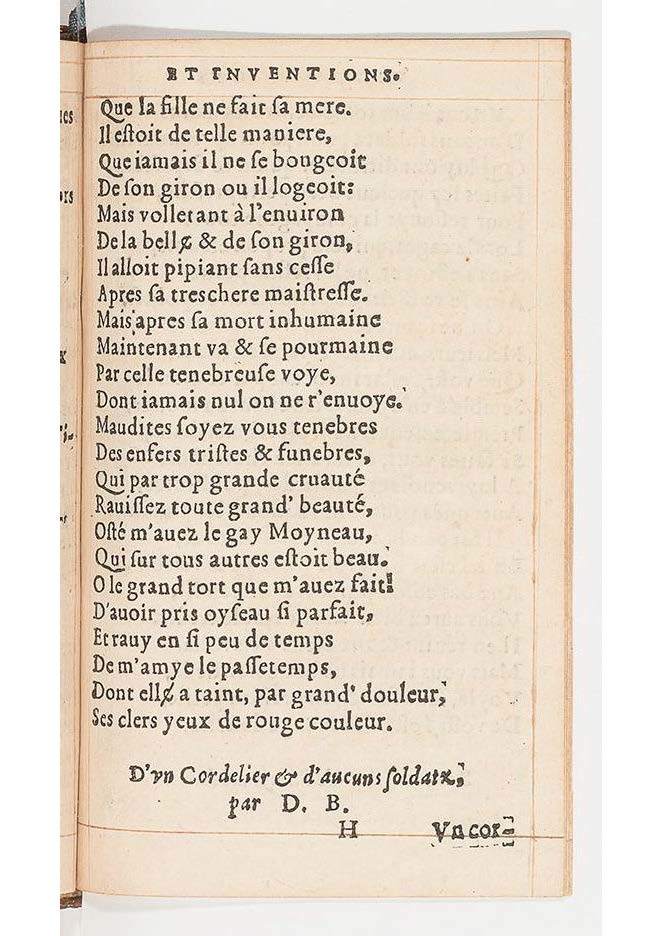 ET INVENTIONS.
Que la fille ne fait ſa mere.
Il eſtoit de telle maniere,
Que iamais il ne ſe bougeoit
De ſon giron ou il logeoit:
Mais volletant à l'enuiron
De la bellɇ & de ſon giron,
Il alloit pipiant ſans ceſſe
Apres ſa treschere maiſtreſſe.
Mais apres ſa mort inhumaine
Maintenant va & ſe pourmaine
Par celle tenebreuſe voye,
Dont iamais nul on ne r'enuoye.
Maudites ſoyez vous tenebres
Des enfers triſtes & funebres,
Qui par trop grande cruauté
Rauiſſez toute grand' beauté,
Oſté m'auez le gay Moyneau,
Qui ſur tous autres eſtoit beau.
O le grand tort que m'auez fait!
D'auoir pris oyſeau ſi parfait,
Et rauy en ſi peu de temps
De m'amye le paſſetemps,
Dont ellɇ a taint, par grand' douleur,
Ses clers yeux de rouge couleur.
D'vn Cordelier & d'aucuns ſoldatz,
par D. B.
H Vn cor-